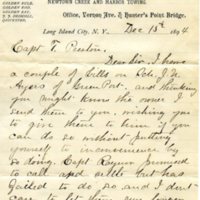 GOLDEN RULE,
GOLDEN ROD,
GOLDEN AGE,
NEWTOWN CREEK AND HARBOR TOWING.
Office, Vernon Ave. & Hunter's Point Bridge.
Long Island City, N. Y., Dec 15th 1894
Capt T. Preston.
Dear Sir. I have
a couple of bills on Sch. J. H.
Ayers of Green Port. and thinking
you might know the owner I
send them to you, wishing you
to give them to him if you
can do so without putting
yourself to inconvenience by
so doing. Capt promised
to call and settle but has
failed to do so and I dont
care to let them run longer